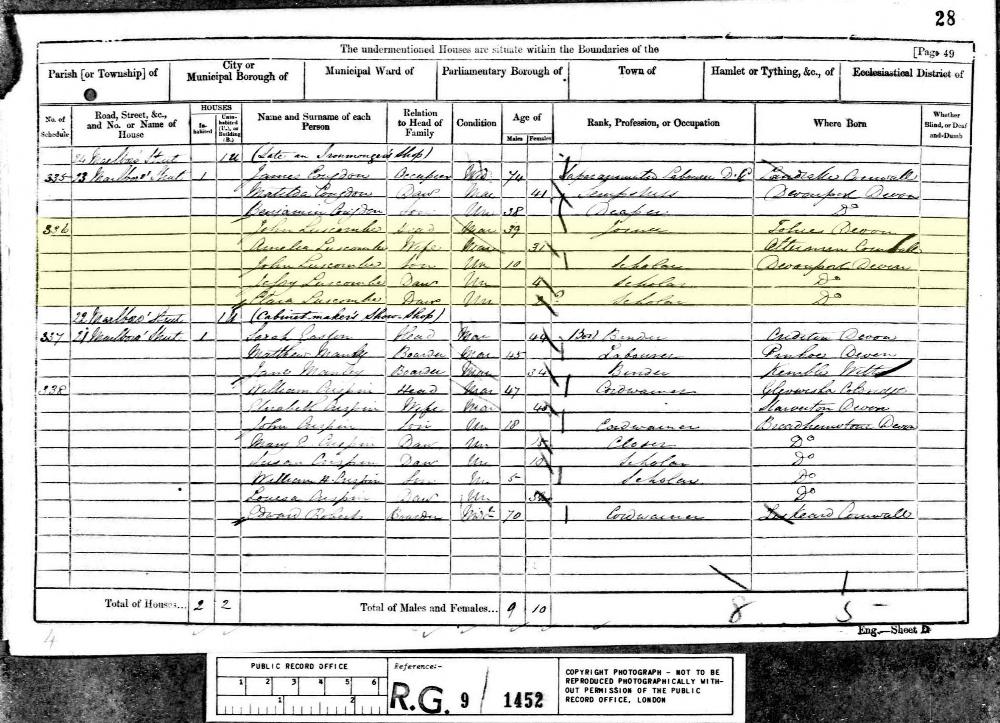 28
The undermentioned Houses are situate within the Boundaries of the
[Page 49
Parish [or Township] of
City or Municipal Borough of
Municipal Ward of
Parliamentary Borough of
Town of
Hamlet or Tything, &c., of
Ecclesiastical District of
No. of Schedule
Road, Street, &c., and No. or Name of House
HOUSES
Inhabited
Uninhabited (U.), or Building (B.)
Name and Surname of each Person
Relation to Head of Family
Condition
Age of
Males
Females
Rank, Profession, or Occupation
Where Born
Whether Blind, or Deaf-and-Dumb
24 Marlbro' Street 1U (Late an Ironmonger's Shop)
335 23 Marlbro' Street 1 James Congdon Occupier 74 Cornwall
Matilda Congdon Daw 41 Sempstress Devonport Devon
Benjamin Congdon Son Un 38 Draper Do
336 John Luscombe Head Mar 39 Joiner Totnes Devon
Amelia Luscombe Wife Mar 31 Cornwall
John Luscombe Son Un 10 Scholar Devonport Devon
Luscombe Daw Un Scholar Do
Clara Luscombe Daw Un Scholar Do
22 Marlbro' Street 1U (Cabinet-maker's Show-Shop)
337 21 Marlbro' Street 1 Sarah Head Mar 44 Binder Crediton Devon
Matthew Manby Boarder Mar 45 Labourer Pinhoe Devon
Jane Manby Boarder Mar 34 Binder Kemble Wilts
338 William Crispin Head Mar 47 Cordwainer
Elizabeth Crispin Wife Mar Staverton Devon
John Crispin Son Un 18 Cordwainer Broadhempston Devon
Mary E Crispin Daw Un 15 Closer Do
Susan Crispin Daw Un Scholar Do
William H Crispin Son Un 5 Scholar Do
Louisa Crispin Daw Un Do
Edward Roberts Boarder 70 Cordwainer Liskeard Cornwall
Total of Houses... 2 2
Total of Males and Females... 9 10
8 5
Eng.—Sheet D
4
PUBLIC RECORD OFFICE
1 2 3 4 5 6
1 2
Reference:-
R.G. 9 / 1452
COPYRIGHT PHOTOGRAPH - NOT TO BE
REPRODUCED PHOTOGRAPHICALLY WITH-
OUT PERMISSION OF THE PUBLIC
RECORD OFFICE, LONDON